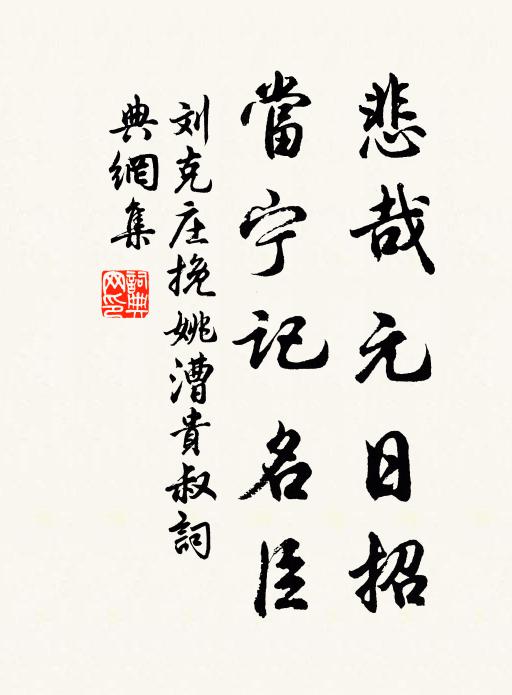 悲哉元日招
當宁記名臣
刘克庄挽姚漕貴叔詞
典網集
詞典网印